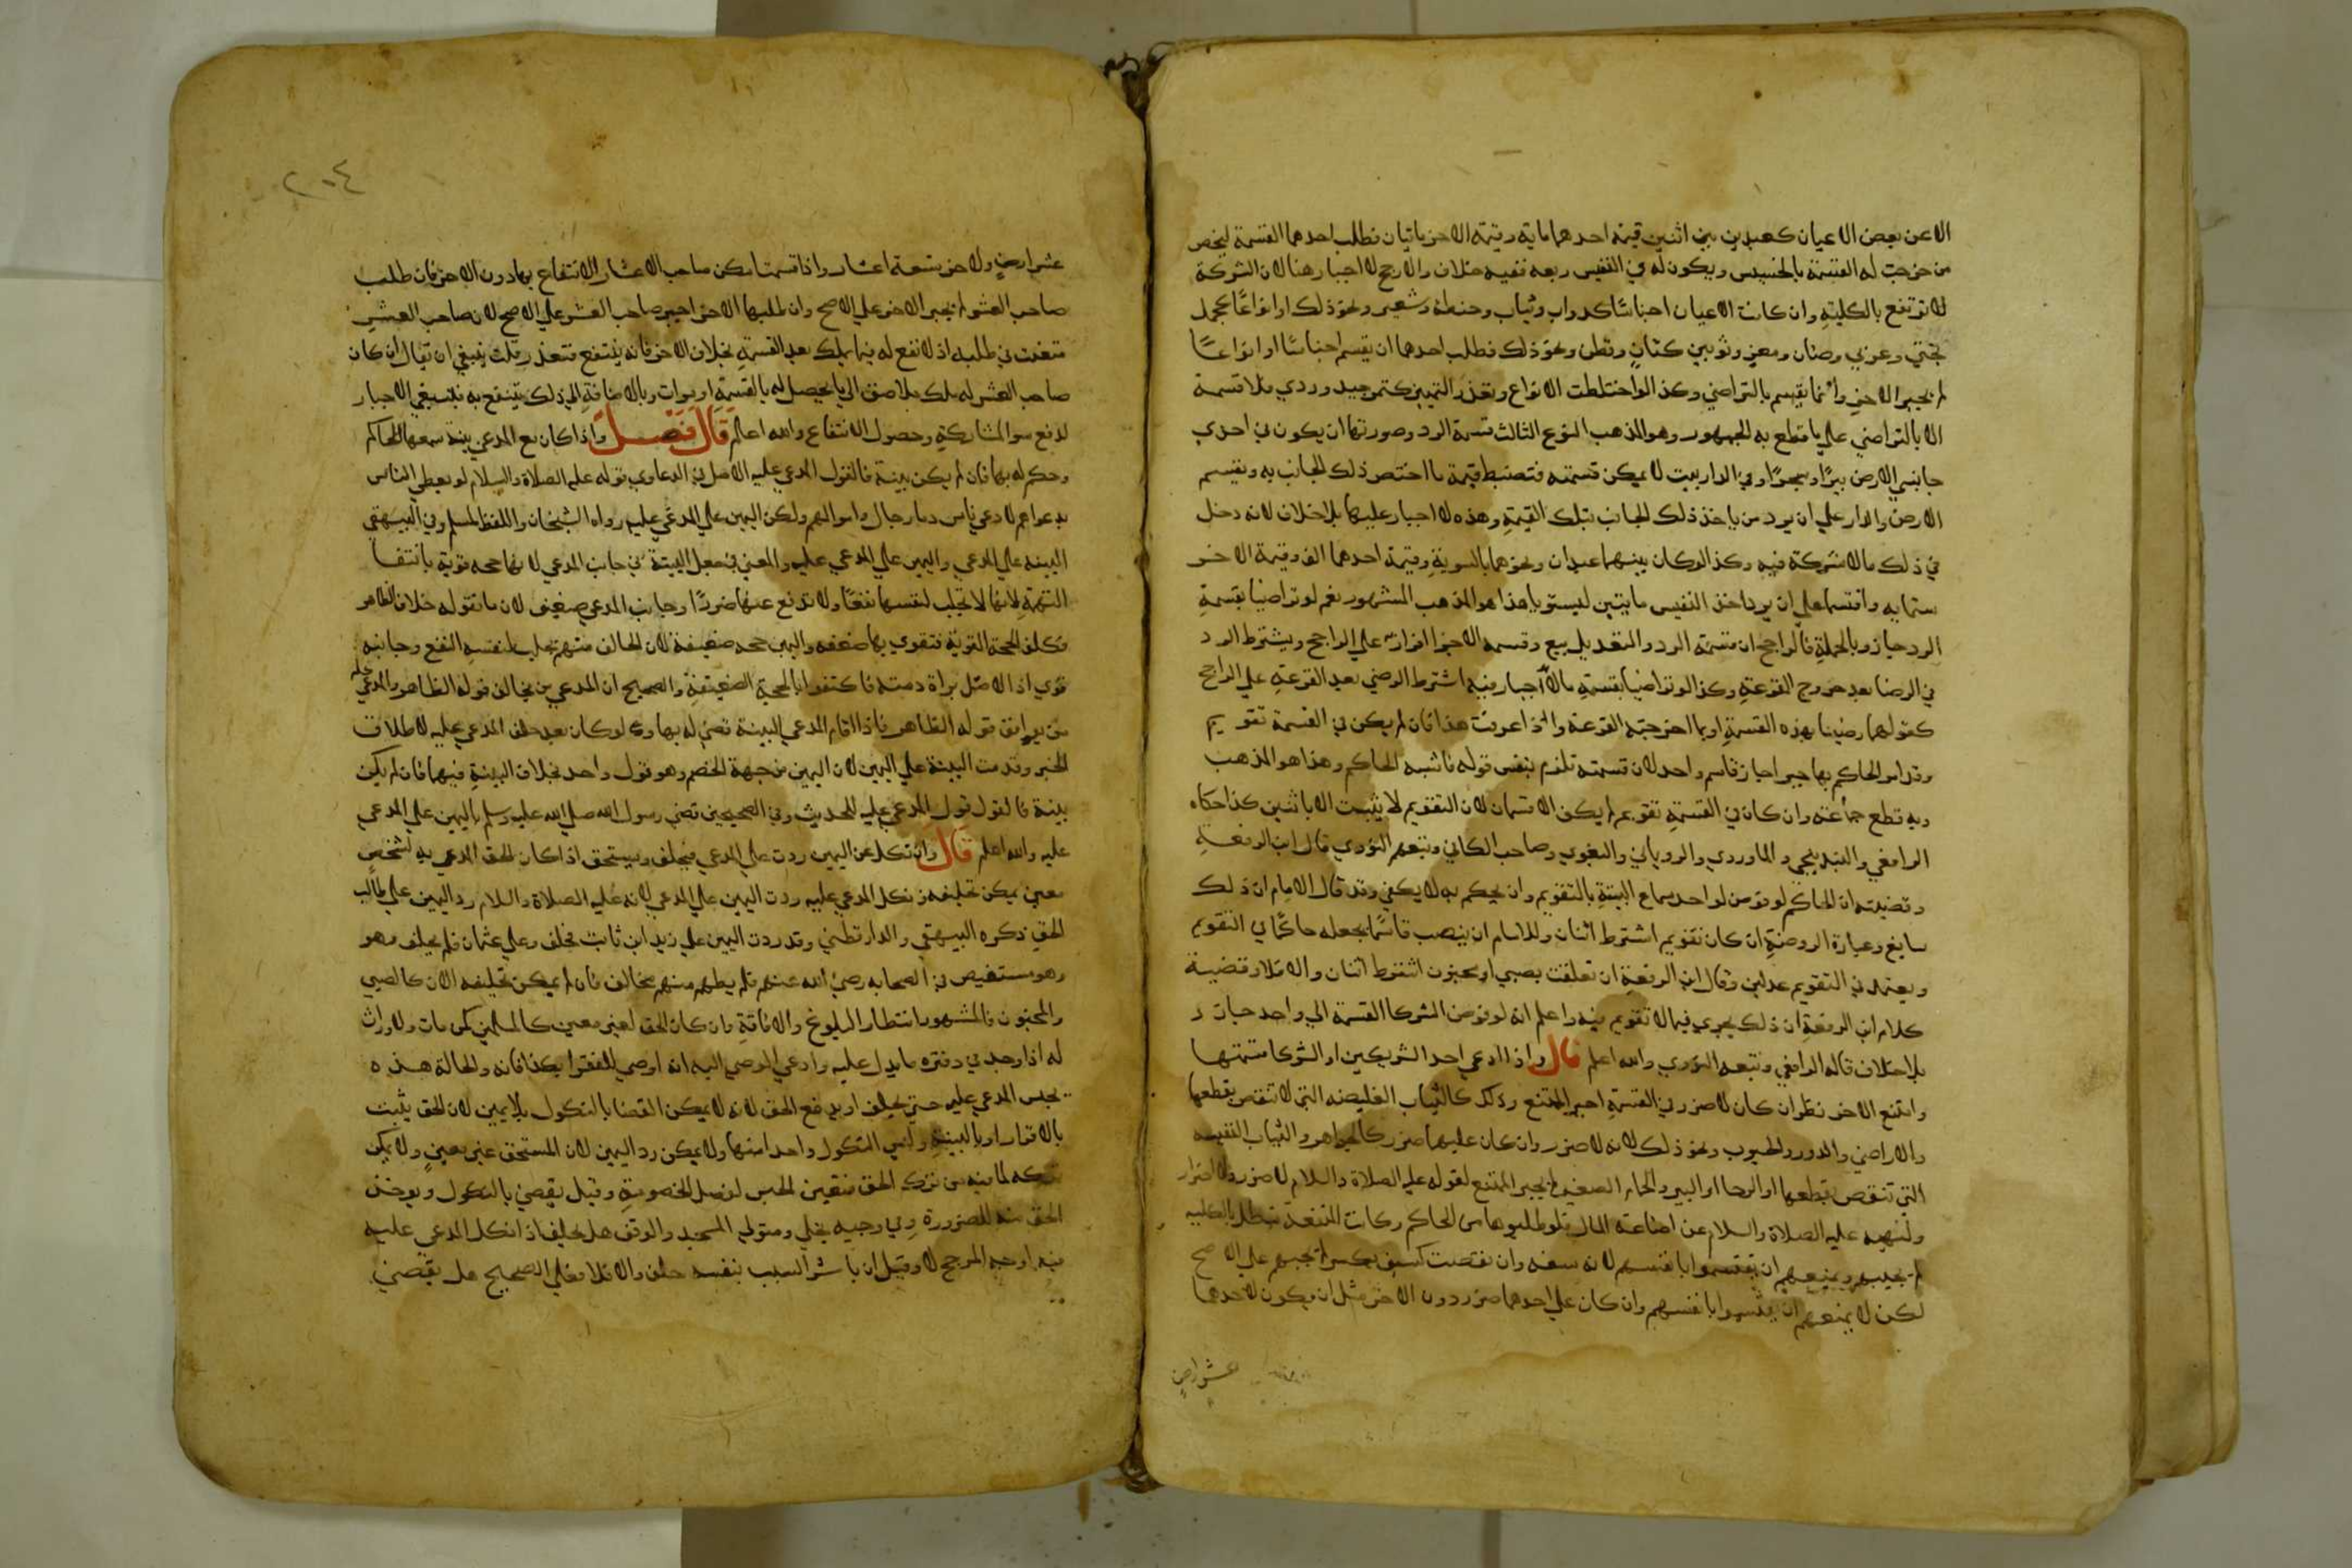 الا عن بعض الاعيان كعبدين بين اثنين قيمة احدهما ماية وقيمة الاخر ماتيان فطلب احدهما القسمة ليختص
من خرجت له القسمة بالخسيس ويكون له في النفيس ربعه ففيه خلاف والارجح لا اجبار هنا لان الشركة
لا ترتفع بالكلية وان كانت الاعيان اجناسًا كدواب وثياب وحنطة وشعير ونحو ذلك او انواعًا كجمل
بختي وعربي وضان ومعز وثوبين كتان وقطن ونحو ذلك فطلب احدهما ان يقسم اجناسًا او انواعًا
لم يجبر الاخر وانما يقسم بالتراضي وكذا لو اختلطت الانواع وتعذر التمييز كتمر جيد وردي فلا قسمة
الا بالتراضي على ما قطع به الجمهور وهو المذهب النوع الثالث قسمة الرد وصورتها ان يكون في احدي
جانبي الارض بيرًا وشجرًا وفي الدار بيت لا يمكن قسمته فتضبط قيمة ما اختص ذلك الجانب به وتقسم
الارض والدار علي ان يرد من ياخذ ذلك الجانب بتلك القيمة وهذه لا اجبار عليها بلا خلاف لانه دخل
في ذلك مالا شركة فيه وكذا لو كان بينهما عبدان ونحوهما بالسوية وقيمة احدهما الف وقيمة الاخر
ستماية واقتسما علي ان يرد اخذ النفيس مايتين ليستويا هذا هو المذهب المشهور نعم لو تراضيا بقسمة
الرد جاز وبالجملة فالراجح ان قسمة الرد والتعديل بيع وقسمة الاجزا افراز علي الراجح ويشترط الرد
في الرضا بعد خروج القرعة وكذا لو تراضيا بقسمة مالا اجبار فيه اشترط الرضي بعد القرعة علي الراجح
كقولهما رضينا بهذه القسمة او بما اخرجته القرعة واذا عرفت هذا فان لم يكن في القسمة تقويم
وقد امر الحاكم بها جبرا جاز قاسم واحد لان قسمته تلزم بنفس قوله فاشبه الحاكم وهذا هو المذهب
وبه قطع جماعة وان كان في القسمة تقويم لم يكف الا قسمان لان التقويم لا يثبت الا باثنين كذا حكاه
الرافعي والبندنيجي والماوردي والروياني والبغوي وصاحب الكافي وتبعهم النووي قال ابن الرفعة
وقضيته ان الحاكم لو فوض لواحد سماع البينة بالتقويم وان يحكم به لا يكفي وقد قال الامام ان ذلك
سايغ وعبارة الروضة ان كان تقويم اشترط اثنان وللامام ان ينصب قاسمًا يجعله حاكمًا في التقويم
ويعتمد في التقويم عدلين وقال ابن الرفعة ان تعلقت بصبي او مجنون اشترط اثنان والا فلا وقضية
كلام ابن الرفعة ان ذلك يجري فيما لا تقويم فيه واعلم انه لو فوض الشركا القسمة الي واحد جاز
بلا خلاف قاله الرافعي وتبعه النووي والله اعلم قال واذا ادعي احد الشريكين او الشركا قسمتها
وامتنع الاخر نظر ان كان لا ضرر في القسمة اجبر الممتنع وذلك كالثياب الغليضه التي لا تنقص بقطعها
والاراضي والدور والحبوب ونحو ذلك لانه لا ضرر وان كان عليهما ضرر كالجواهر والثياب النفيسه
التي تنقص بقطعها او الرحا او البير والحمام الصغير لم يجبر الممتنع لقوله عليه الصلاة والسلام لا ضرر ولا ضرار
ولنهيه عليه الصلاة والسلام عن اضاعة المال فلو طلبوها من الحاكم وكانت المنفعة تبطل بالكليه
لم يجيبهم ويمنعهم ان يقتسموا بانفسهم لانه سفه وان نقصت كسيف يكسر لم يجبهم علي الاصح
لكن لا يمنعهم ان يقسموا بانفسهم وان كان علي احدهما ضرر دون الاخر مثل ان يكون لاحدهما
عشر ارض
٢٠٤
عشر ارض وللاخر تسعة اعشار واذا قسمت امكن صاحب الاعشار الانتفاع بها دون الاخر فان طلب
صاحب العشر لم يجبر الاخر علي الاصح وان طلبها الاخر اجبر صاحب العشر علي الاصح لان صاحب العشر
متعنت في طلبه اذ لا نفع له فيما يملك بعد القسمة بخلاف الاخر فانه ينتفع فتعذر قلت ينبغي ان يقال ان كان
صاحب العشر له ملك ملاصق الي ما يحصل له بالقسمة او موات وبالاضافة الي ذلك ينتفع به فينبغي الاجبار
لدفع سو المشاركة وحصول الانتفاع والله اعلم قال فصل واذا كان مع المدعي بينة سمعها الحاكم
وحكم له بها فان لم يكن بينة فالقول المدعي عليه الاصل في الدعاوي قوله عليه الصلاة والسلام لو يعطي الناس
بدعواهم لادعي ناس دما رجال واموالهم ولكن اليمين علي المدعي عليه رواه الشيخان واللفظ لمسلم وفي البيهقي
البينة علي المدعي واليمين علي المدعي عليه والمعني في جعل البينة في جانب المدعي لانها حجه قوية بانتفا
التهمة لانها لا تجلب لنفسها نفعًا ولا تدفع عنها ضررًا وجانب المدعي ضعيف لان ما تقوله خلاف الظاهر
فكلف الحجة القوية فتقوي بها ضعفه واليمين حجه ضعيفة لان الحالف متهم يجلب لنفسه النفع وجانبه
قوي اذ الاصل براة ذمته فاكتفوا بالحجة الضعيفة والصحيح ان المدعي من يخالف قوله الظاهر والمدعي عليه
من يوافق قوله الظاهر فاذا اقام المدعي البينة قضي له بها ولو كان بعد حلف المدعي عليه لاطلاق
الخبر وقدمت البينة علي اليمين لان اليمين من جهة الخصم وهو قول واحد بخلاف البينة فيهما فان لم يكن
بينة فالقول قول المدعي عليه للحديث وفي الصحيحين قضي رسول الله صلي الله عليه وسلم باليمين علي المدعي
عليه والله اعلم قال وان نكل عن اليمين ردت علي المدعي فيحلف ويستحق اذا كان الحق المدعي به لشخص
معين يمكن تحليفه ونكل المدعي عليه ردت اليمين علي المدعي لانه عليه الصلاة والسلام رد اليمين علي طالب
الحق ذكره البيهقي والدارقطني وقد ردت اليمين علي زيد ابن ثابت فحلف وعلي عثمان فلم يحلف وهو
وهو مستفيض في الصحابه رضي الله عنهم فلم يظهر منهم مخالف فان لم يمكن تحليفه الان كالصبي
والمجنون فالمشهور انتظار البلوغ والافاقة وان كان الحق لغير معين كالمسلمين كمن مات ولا وارث
له اذا وجد في دفتره ما يدل عليه وادعي الوصي اليه انه اوصي للفقرا بكذا فانه والحالة هذه
يحبس المدعي عليه حتي يحلف او يدفع الحق لانه لا يمكن القضا بالنكول بلا يمين لان الحق يثبت
بالاقرار او بالبينة وليس النكول واحدا منهما ولا يمكن رد اليمين لان المستحق غير معين ولا يمكن
تركه لما فيه من ترك الحق فتعين الحبس لفصل الخصومة وقيل يقضي بالنكول ويوخذ
الحق منه للضرورة وفي وجيه يخلي ومتولي المسجد والوقف هل يحلف اذا نكل المدعي عليه
فيه اوجه المرجح لا وقيل ان باشر السبب بنفسه حلف والا فلا فعلي الصحيح هل يقضي